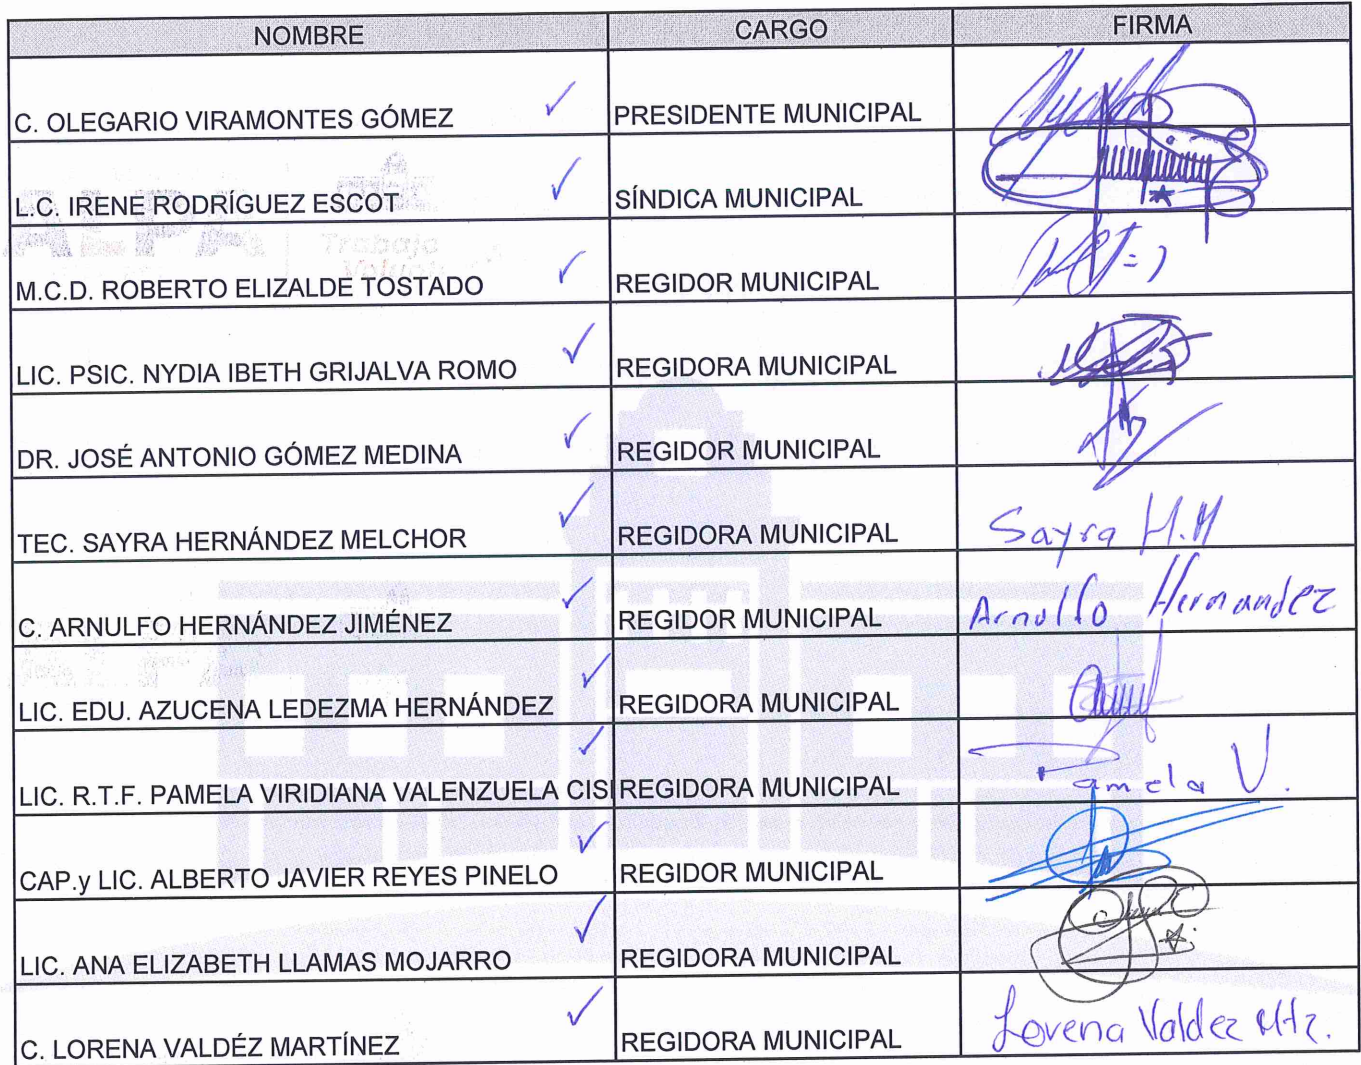 NOMBRE CARGO FIRMA
C. OLEGARIO VIRAMONTES GÓMEZ PRESIDENTE MUNICIPAL
L.C. IRENE RODRÍGUEZ ESCOT SÍNDICA MUNICIPAL
Trabajo
M.C.D. ROBERTO ELIZALDE TOSTADO REGIDOR MUNICIPAL
LIC. PSIC. NYDIA IBETH GRIJALVA ROMO REGIDORA MUNICIPAL
DR. JOSÉ ANTONIO GÓMEZ MEDINA REGIDOR MUNICIPAL
TEC. SAYRA HERNÁNDEZ MELCHOR REGIDORA MUNICIPAL Sayra H.M
C. ARNULFO HERNÁNDEZ JIMÉNEZ REGIDOR MUNICIPAL Arnulfo Hernandez
LIC. EDU. AZUCENA LEDEZMA HERNÁNDEZ REGIDORA MUNICIPAL
LIC. R.T.F. PAMELA VIRIDIANA VALENZUELA CISI REGIDORA MUNICIPAL Pamela V.
CAP.y LIC. ALBERTO JAVIER REYES PINELO REGIDOR MUNICIPAL
LIC. ANA ELIZABETH LLAMAS MOJARRO REGIDORA MUNICIPAL
C. LORENA VALDÉZ MARTÍNEZ REGIDORA MUNICIPAL Lorena Valdez Mtz.